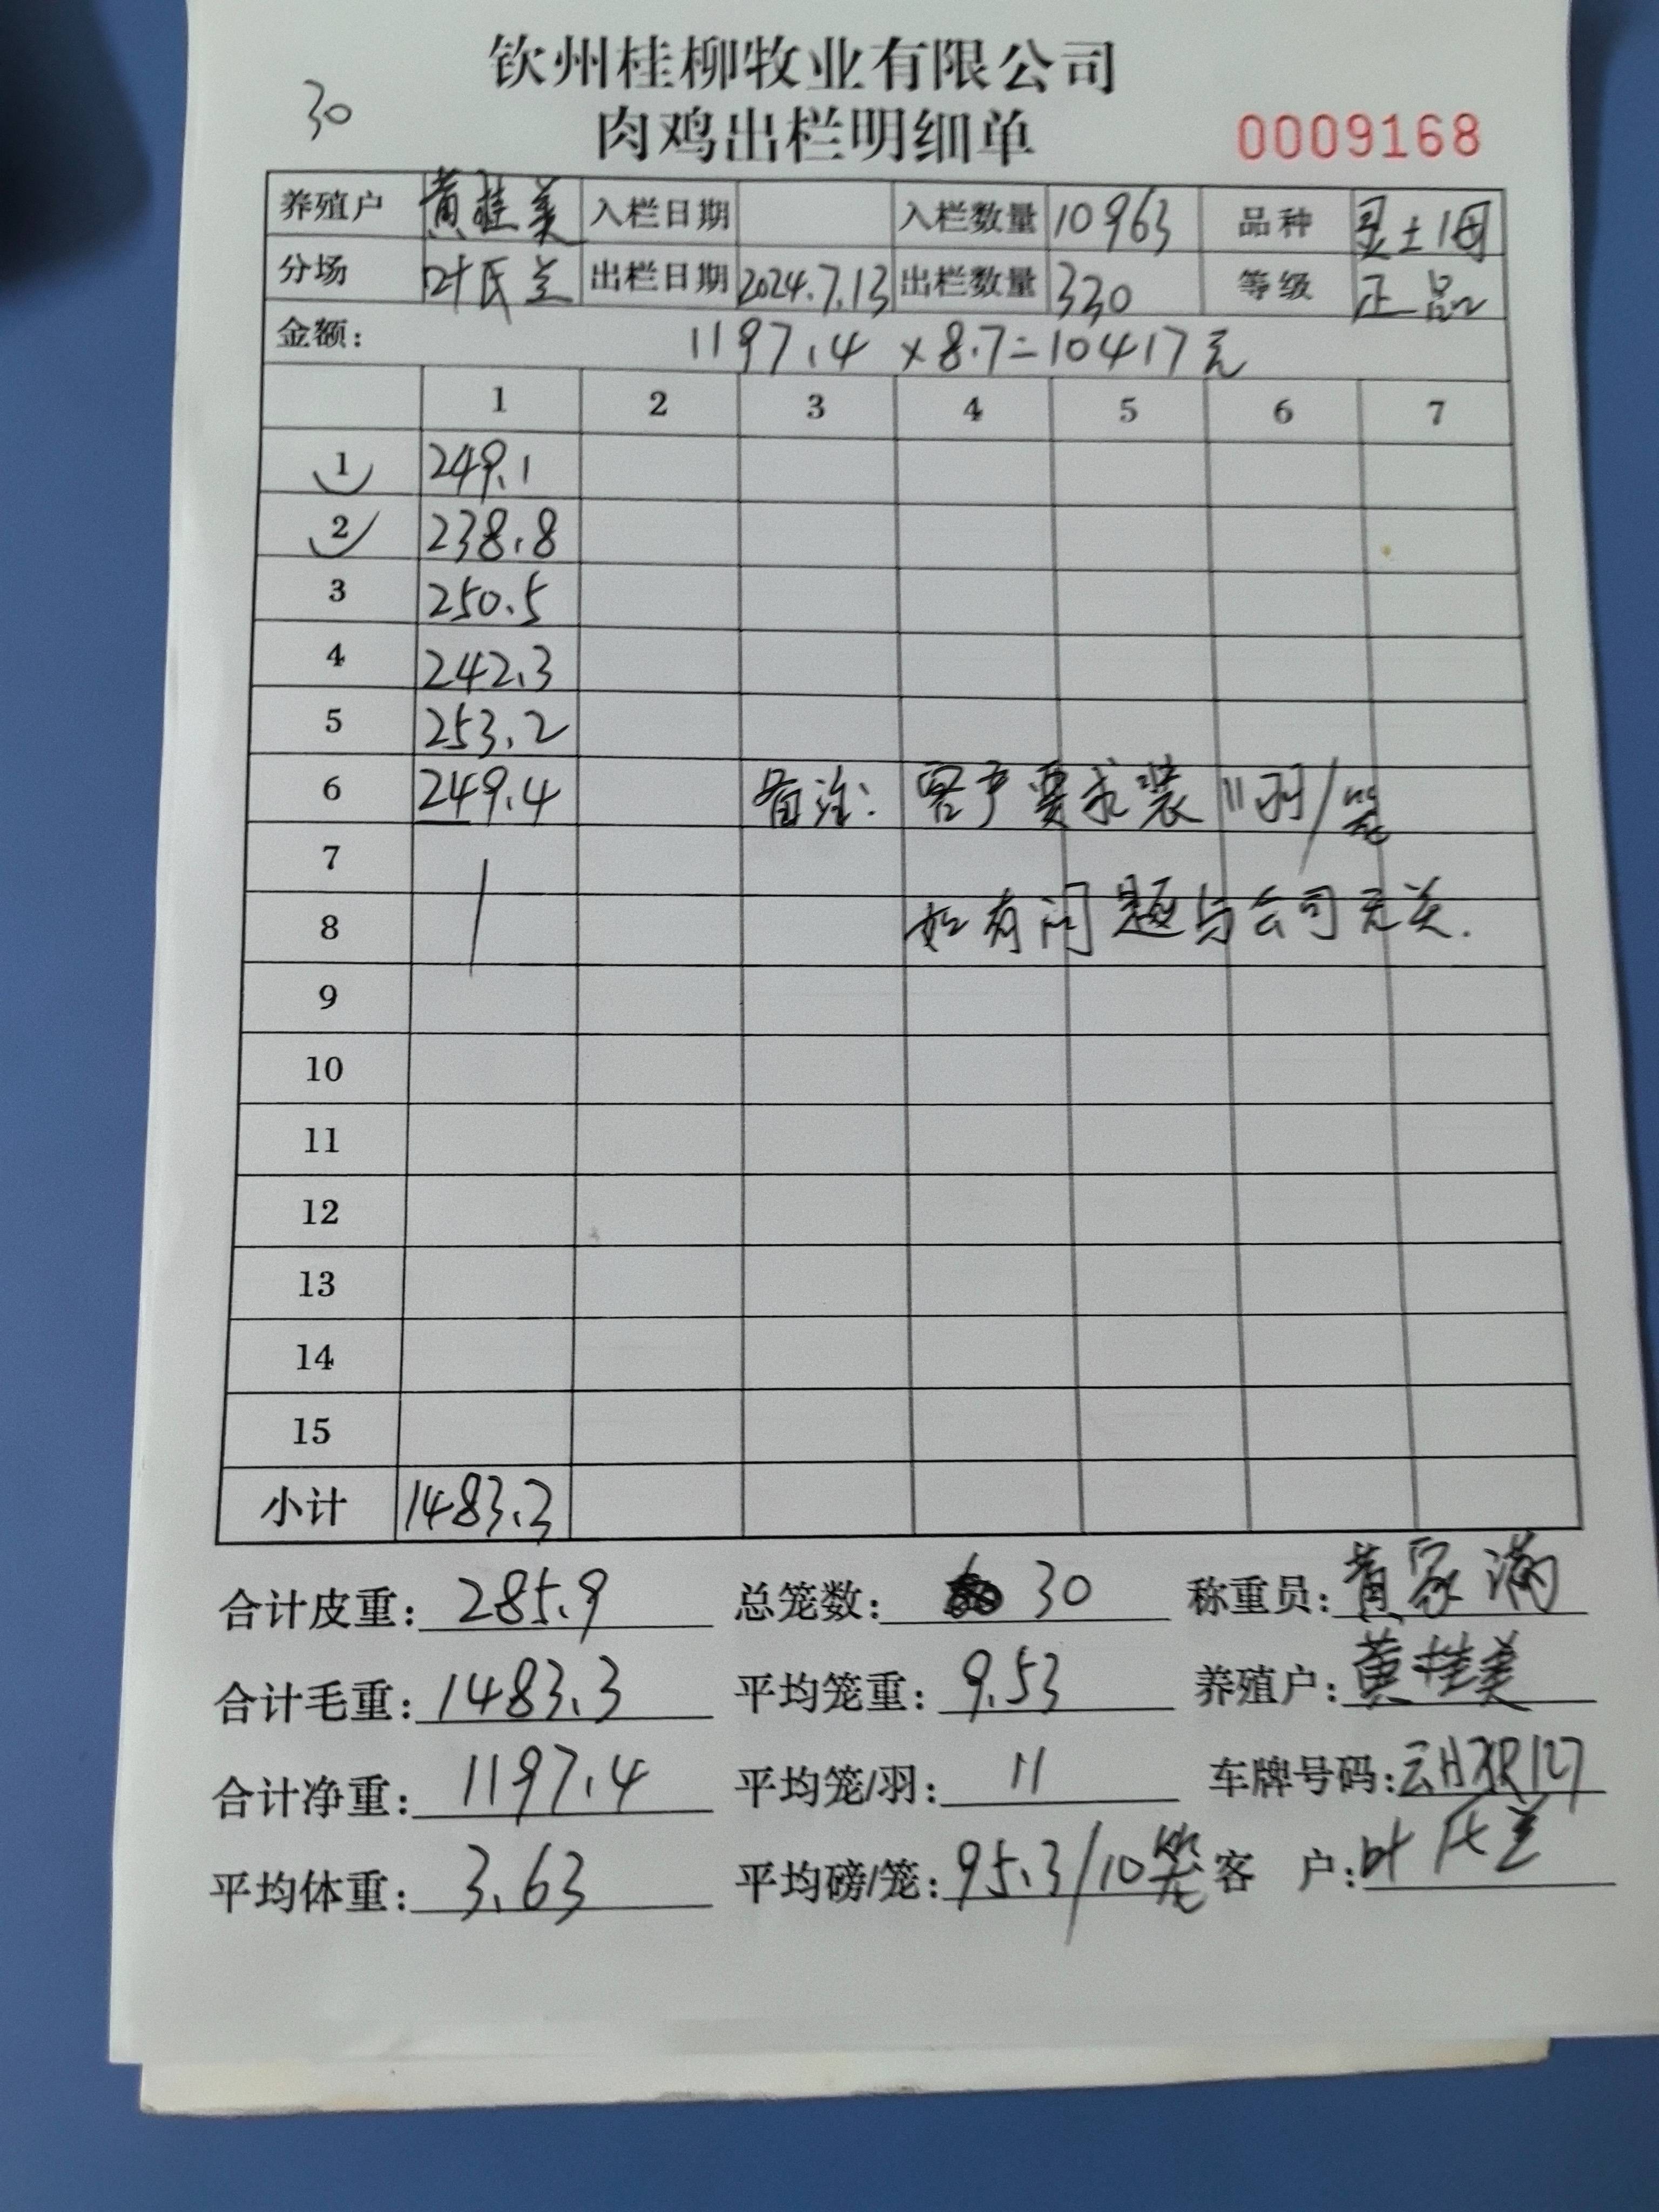 钦州桂柳牧业有限公司
30
肉鸡出栏明细单
0009168
养殖户 黄桂美 入栏日期 入栏数量 10963 品种 灵土1母
分场 叶氏兰 出栏日期 2024.7.13 出栏数量 330 等级 正品
金额: 1197.4 ×8.7=10417元
1 2 3 4 5 6 7
1 249.1
2 238.8
3 250.5
4 242.3
5 253.2
6 249.4 备注: 客户要求装11羽/笼
7
8 如有问题与公司无关.
9
10
11
12
13
14
15
小计 1483.3
合计皮重: 285.9 总笼数: 30 称重员: 黄家满
合计毛重: 1483.3 平均笼重: 9.53 养殖户: 黄桂美
合计净重: 1197.4 平均笼/羽: 11 车牌号码:
平均体重: 3.63 平均磅/笼: 95.3/10笼 客 户: 叶氏兰